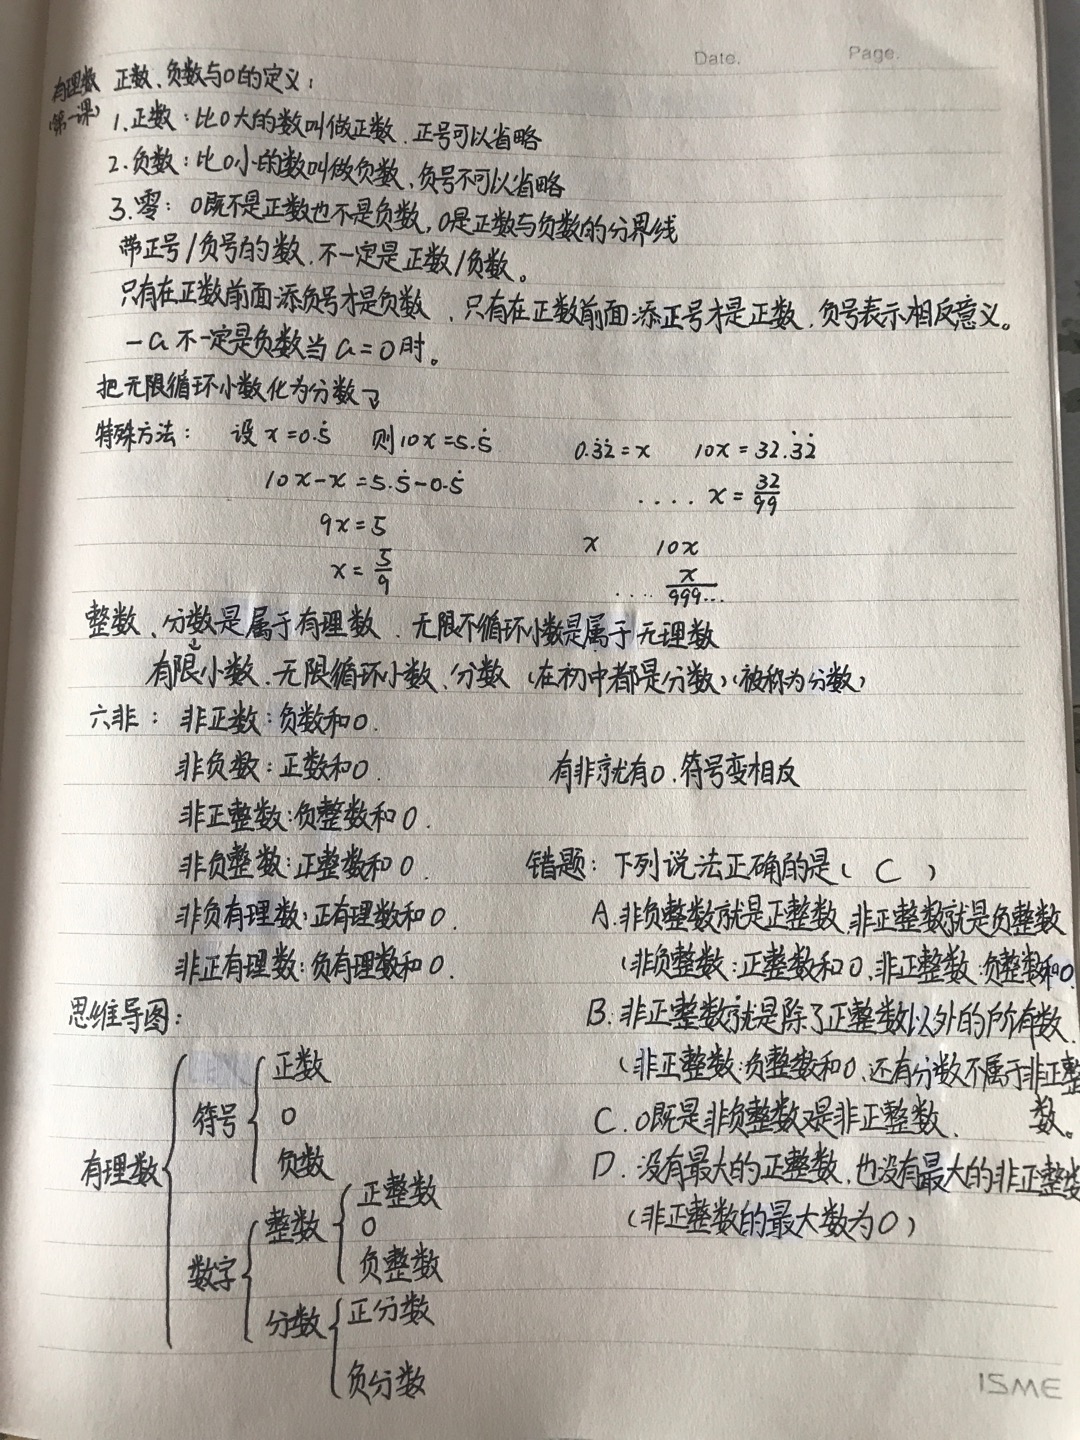 Date. Page.
有理数 正数、负数与0的定义:
(第一课)
1.正数:比0大的数叫做正数.正号可以省略
2.负数:比0小的数叫做负数、负号不可以省略
3.零: 0既不是正数也不是负数,0是正数与负数的分界线
带正号/负号的数.不一定是正数/负数。
只有在正数前面添负号才是负数、只有在正数前面添正号才是正数.负号表示相反意义。
-a不一定是负数当a=0时。
把无限循环小数化为分数↴
特殊方法: 设x=0.5̇ 则10x=5.5̇ 0.3̇2̇=x 10x=32.3̇2̇
10x-x=5.5̇-0.5̇ .... x=32/99
9x=5 x 10x
x=5/9 .... x/999...
整数、分数是属于有理数.无限不循环小数是属于无理数
↓
有限小数、无限循环小数、分数(在初中都是分数)(被称为分数)
六非: 非正数:负数和0.
非负数:正数和0. 有非就有0.符号变相反
非正整数:负整数和0.
非负整数:正整数和0.
非负有理数:正有理数和0.
非正有理数:负有理数和0.
错题: 下列说法正确的是( C )
A.非负整数就是正整数,非正整数就是负整数
(非负整数:正整数和0,非正整数:负整数和0.
B.非正整数就是除了正整数以外的所有数.
(非正整数:负整数和0,还有分数不属于非正整
数。
C.0既是非负整数又是非正整数.
D.没有最大的正整数,也没有最大的非正整数
(非正整数的最大数为0)
思维导图:
有理数
符号
正数
0
负数
数字
整数
正整数
0
负整数
分数
正分数
负分数
ISME